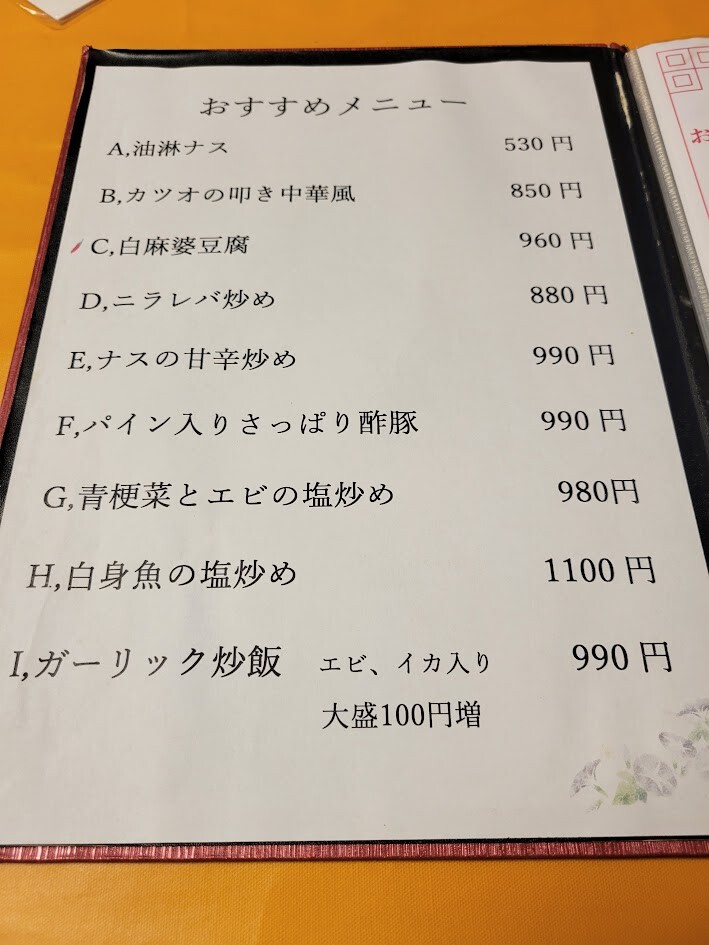 おすすめメニュー
A,油淋ナス 530円
B,カツオの叩き中華風 850円
C,白麻婆豆腐 960円
D,ニラレバ炒め 880円
E,ナスの甘辛炒め 990円
F,パイン入りさっぱり酢豚 990円
G,青梗菜とエビの塩炒め 980円
H,白身魚の塩炒め 1100円
I,ガーリック炒飯 エビ、イカ入り 990円
大盛100円増
お